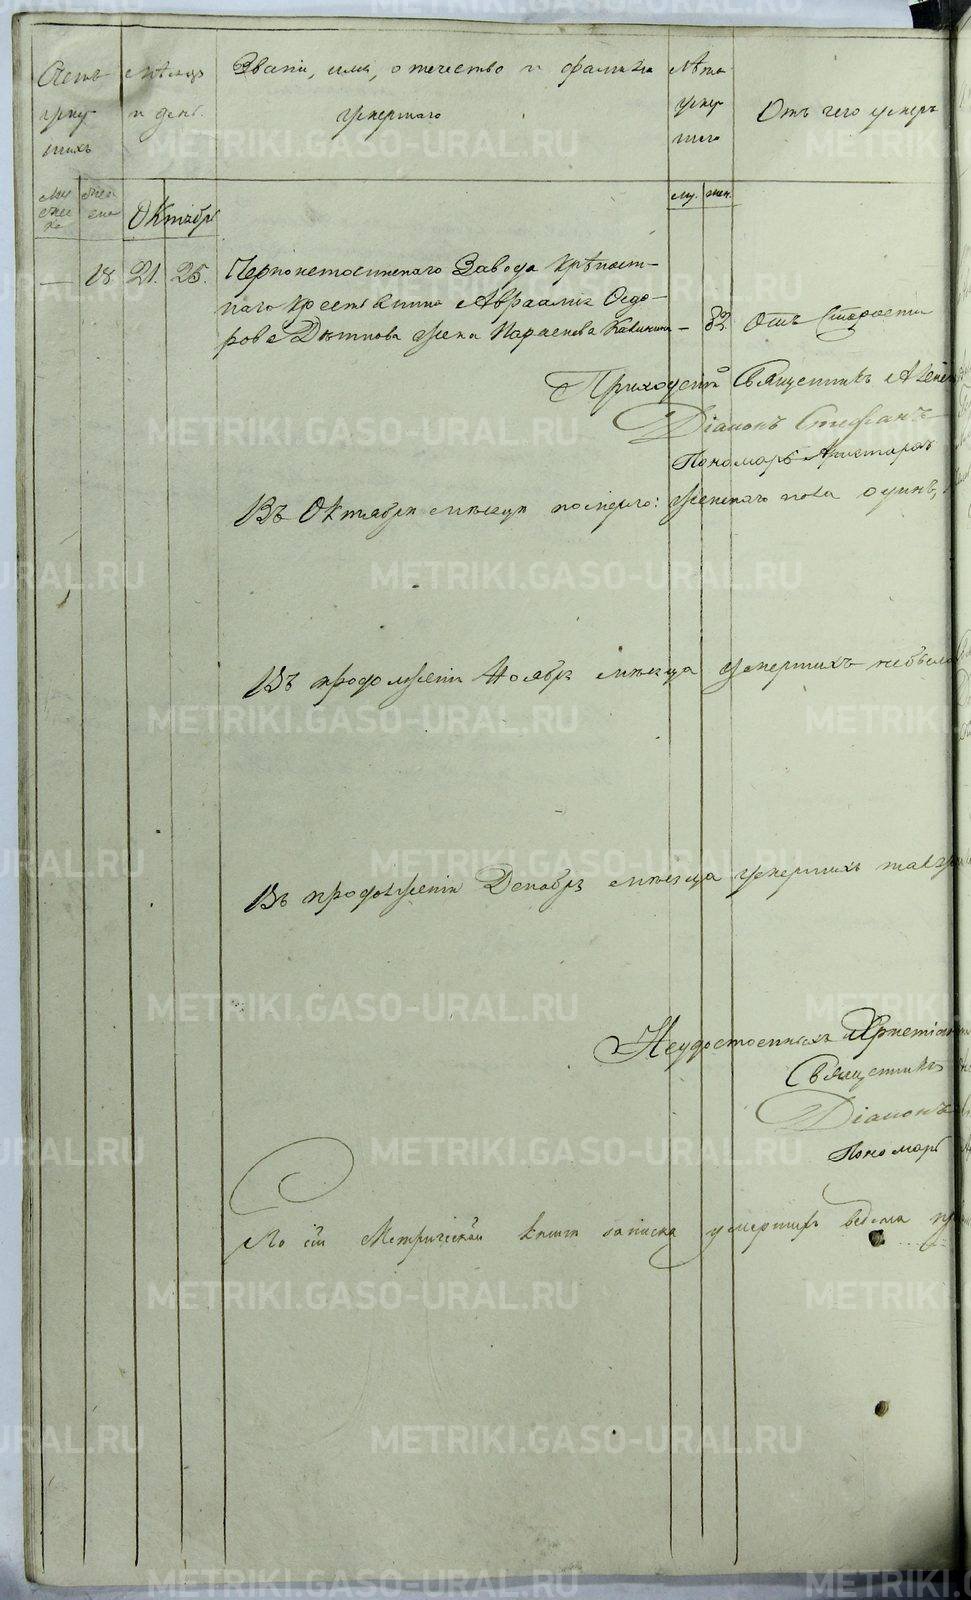 Счетъ умер шихъ
Мѣсяцъ и день.
Званіе, имя, отечество и фамилія умершаго
Лѣта умер шаго
Отъ чего умеръ
Му жес ка
Жен ска
Октябрь
му. жен.
— 18 21. 25. Черноисточинскаго Завода крѣпост-
наго крестьянина Авраамія Ѳедо-
рова жена Параскева Калинина — 82 Отъ Старости
Приходскій Священникъ
Діаконъ Стефанъ
Пономарь Аристархъ
Въ Октябрѣ мѣсяцѣ померло: женска пола одинъ,
Въ продолженіи Ноября мѣсяца умершихъ небыло
Въ продолженіи Декабря мѣсяца умершихъ
Неудостоенныхъ
Священникъ
Діаконъ
Пономарь
По сей Метрической книги записка умершихъ ведена
METRIKI.GASO-URAL.RU